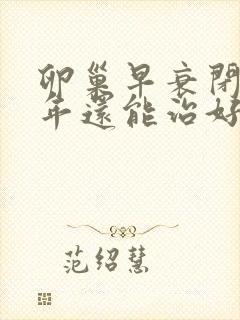 卵巢早衰閉
年還能治好
范紹慧